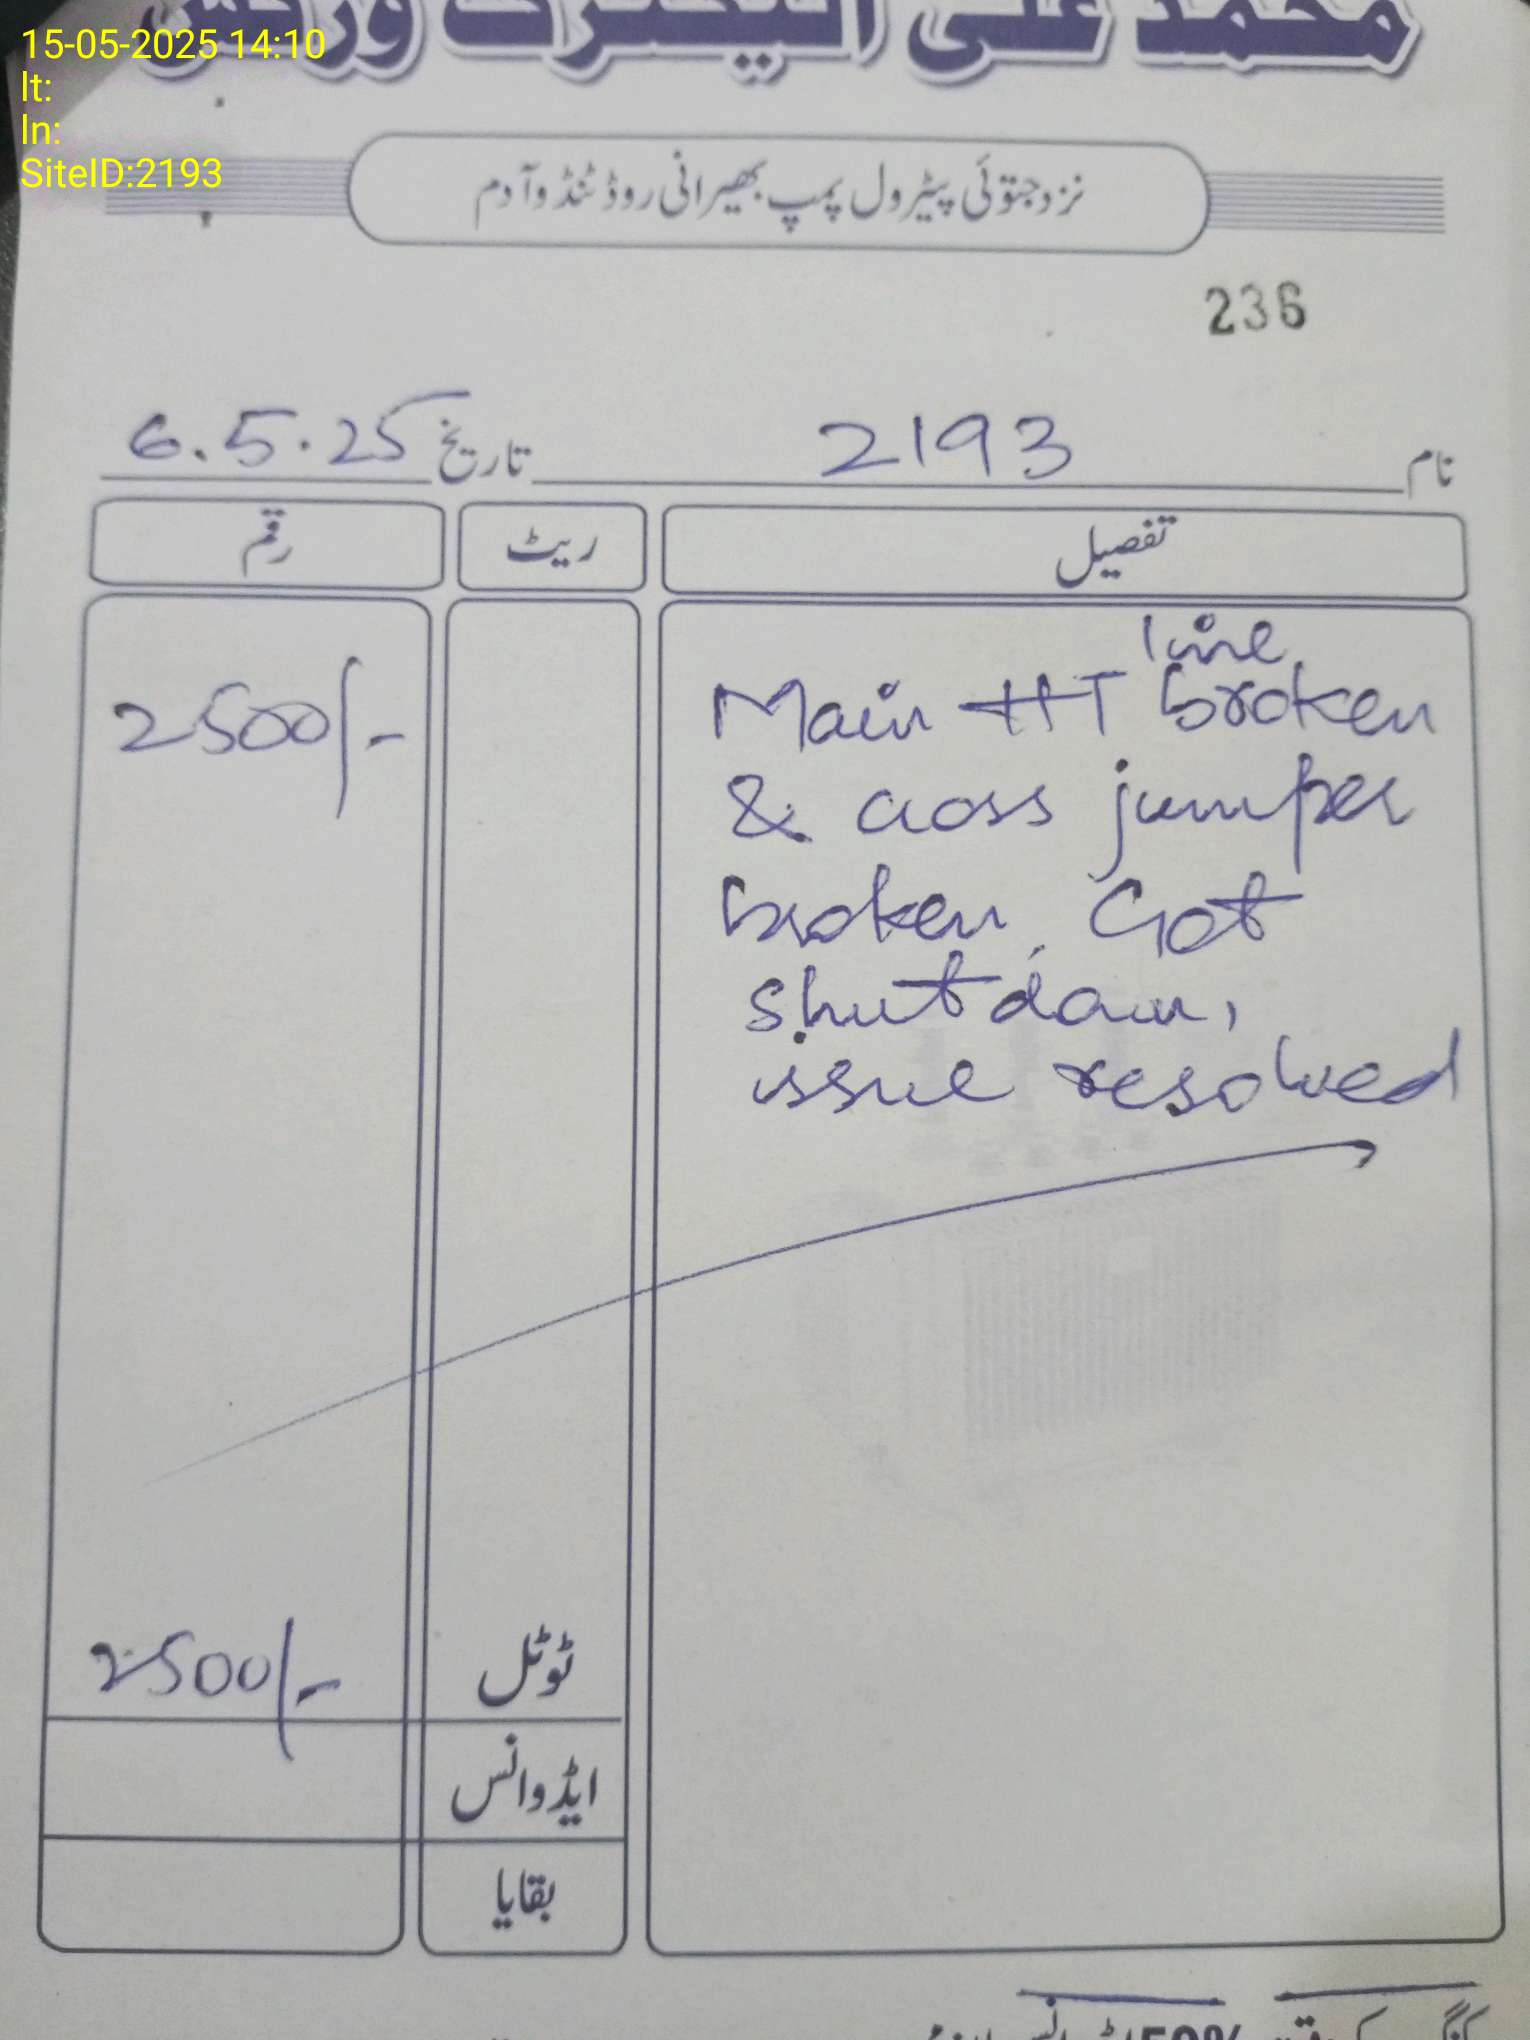 15-05-2025 14:10
lt:
ln:
SiteID:2193
محمد علی الیکٹرک ورکس
نزد جتوئی پیٹرول پمپ بھیرانی روڈ ٹنڈوآدم
236
نام 2193 تاریخ 6.5.25
تفصیل ریٹ رقم
line
Main HT broken 2500/-
& cross jumper
broken, Got
shutdown,
issue resolved
ٹوٹل 2500/-
ایڈوانس
بقایا
50%